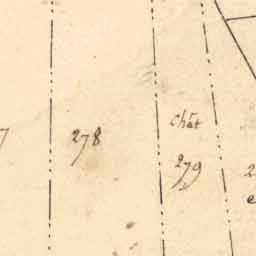 7
278
chât
279
2
e